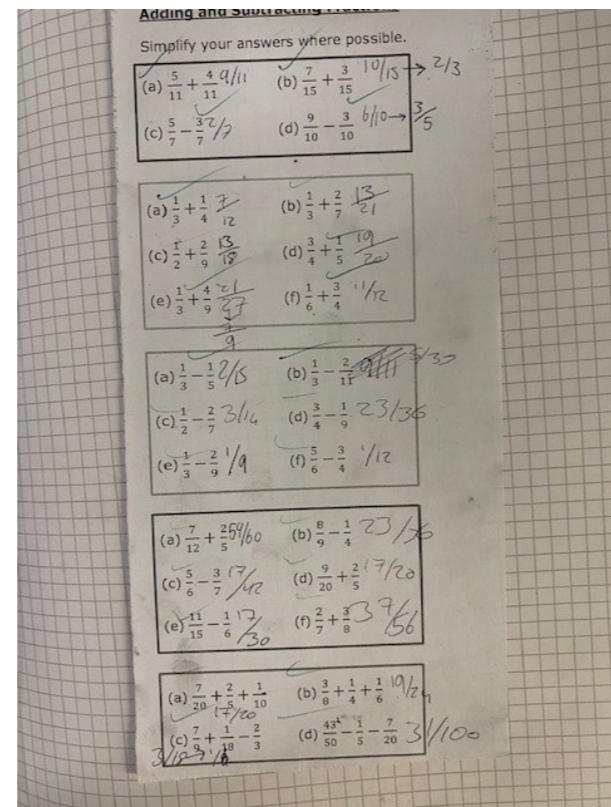 Adding and Subtracting Fractions
Simplify your answers where possible.
(a) 5/11 + 4/11 9/11 (b) 7/15 + 3/15 10/15 → 2/3
(c) 5/7 − 3/7 2/7 (d) 9/10 − 3/10 6/10 → 3/5
(a) 1/3 + 1/4 7/12 (b) 1/3 + 2/7 13/21
(c) 1/2 + 2/9 13/18 (d) 3/4 + 1/5 19/20
(e) 1/3 + 4/9 21/27 (f) 1/6 + 3/4 11/12
7/9
(a) 1/3 − 1/5 2/15 (b) 1/3 − 2/11 5/33
(c) 1/2 − 2/7 3/14 (d) 3/4 − 1/9 23/36
(e) 1/3 − 2/9 1/9 (f) 5/6 − 3/4 1/12
(a) 7/12 + 2/5 59/60 (b) 8/9 − 1/4 23/36
(c) 5/6 − 3/7 17/42 (d) 9/20 + 2/5 17/20
(e) 11/15 − 1/6 17/30 (f) 2/7 + 3/8 37/56
(a) 7/20 + 2/5 + 1/10 (b) 3/8 + 1/4 + 1/6 19/24
17/20
(c) 7/9 + 1/18 − 2/3 (d) 43/50 − 1/5 − 7/20 31/100
3/18 1/6